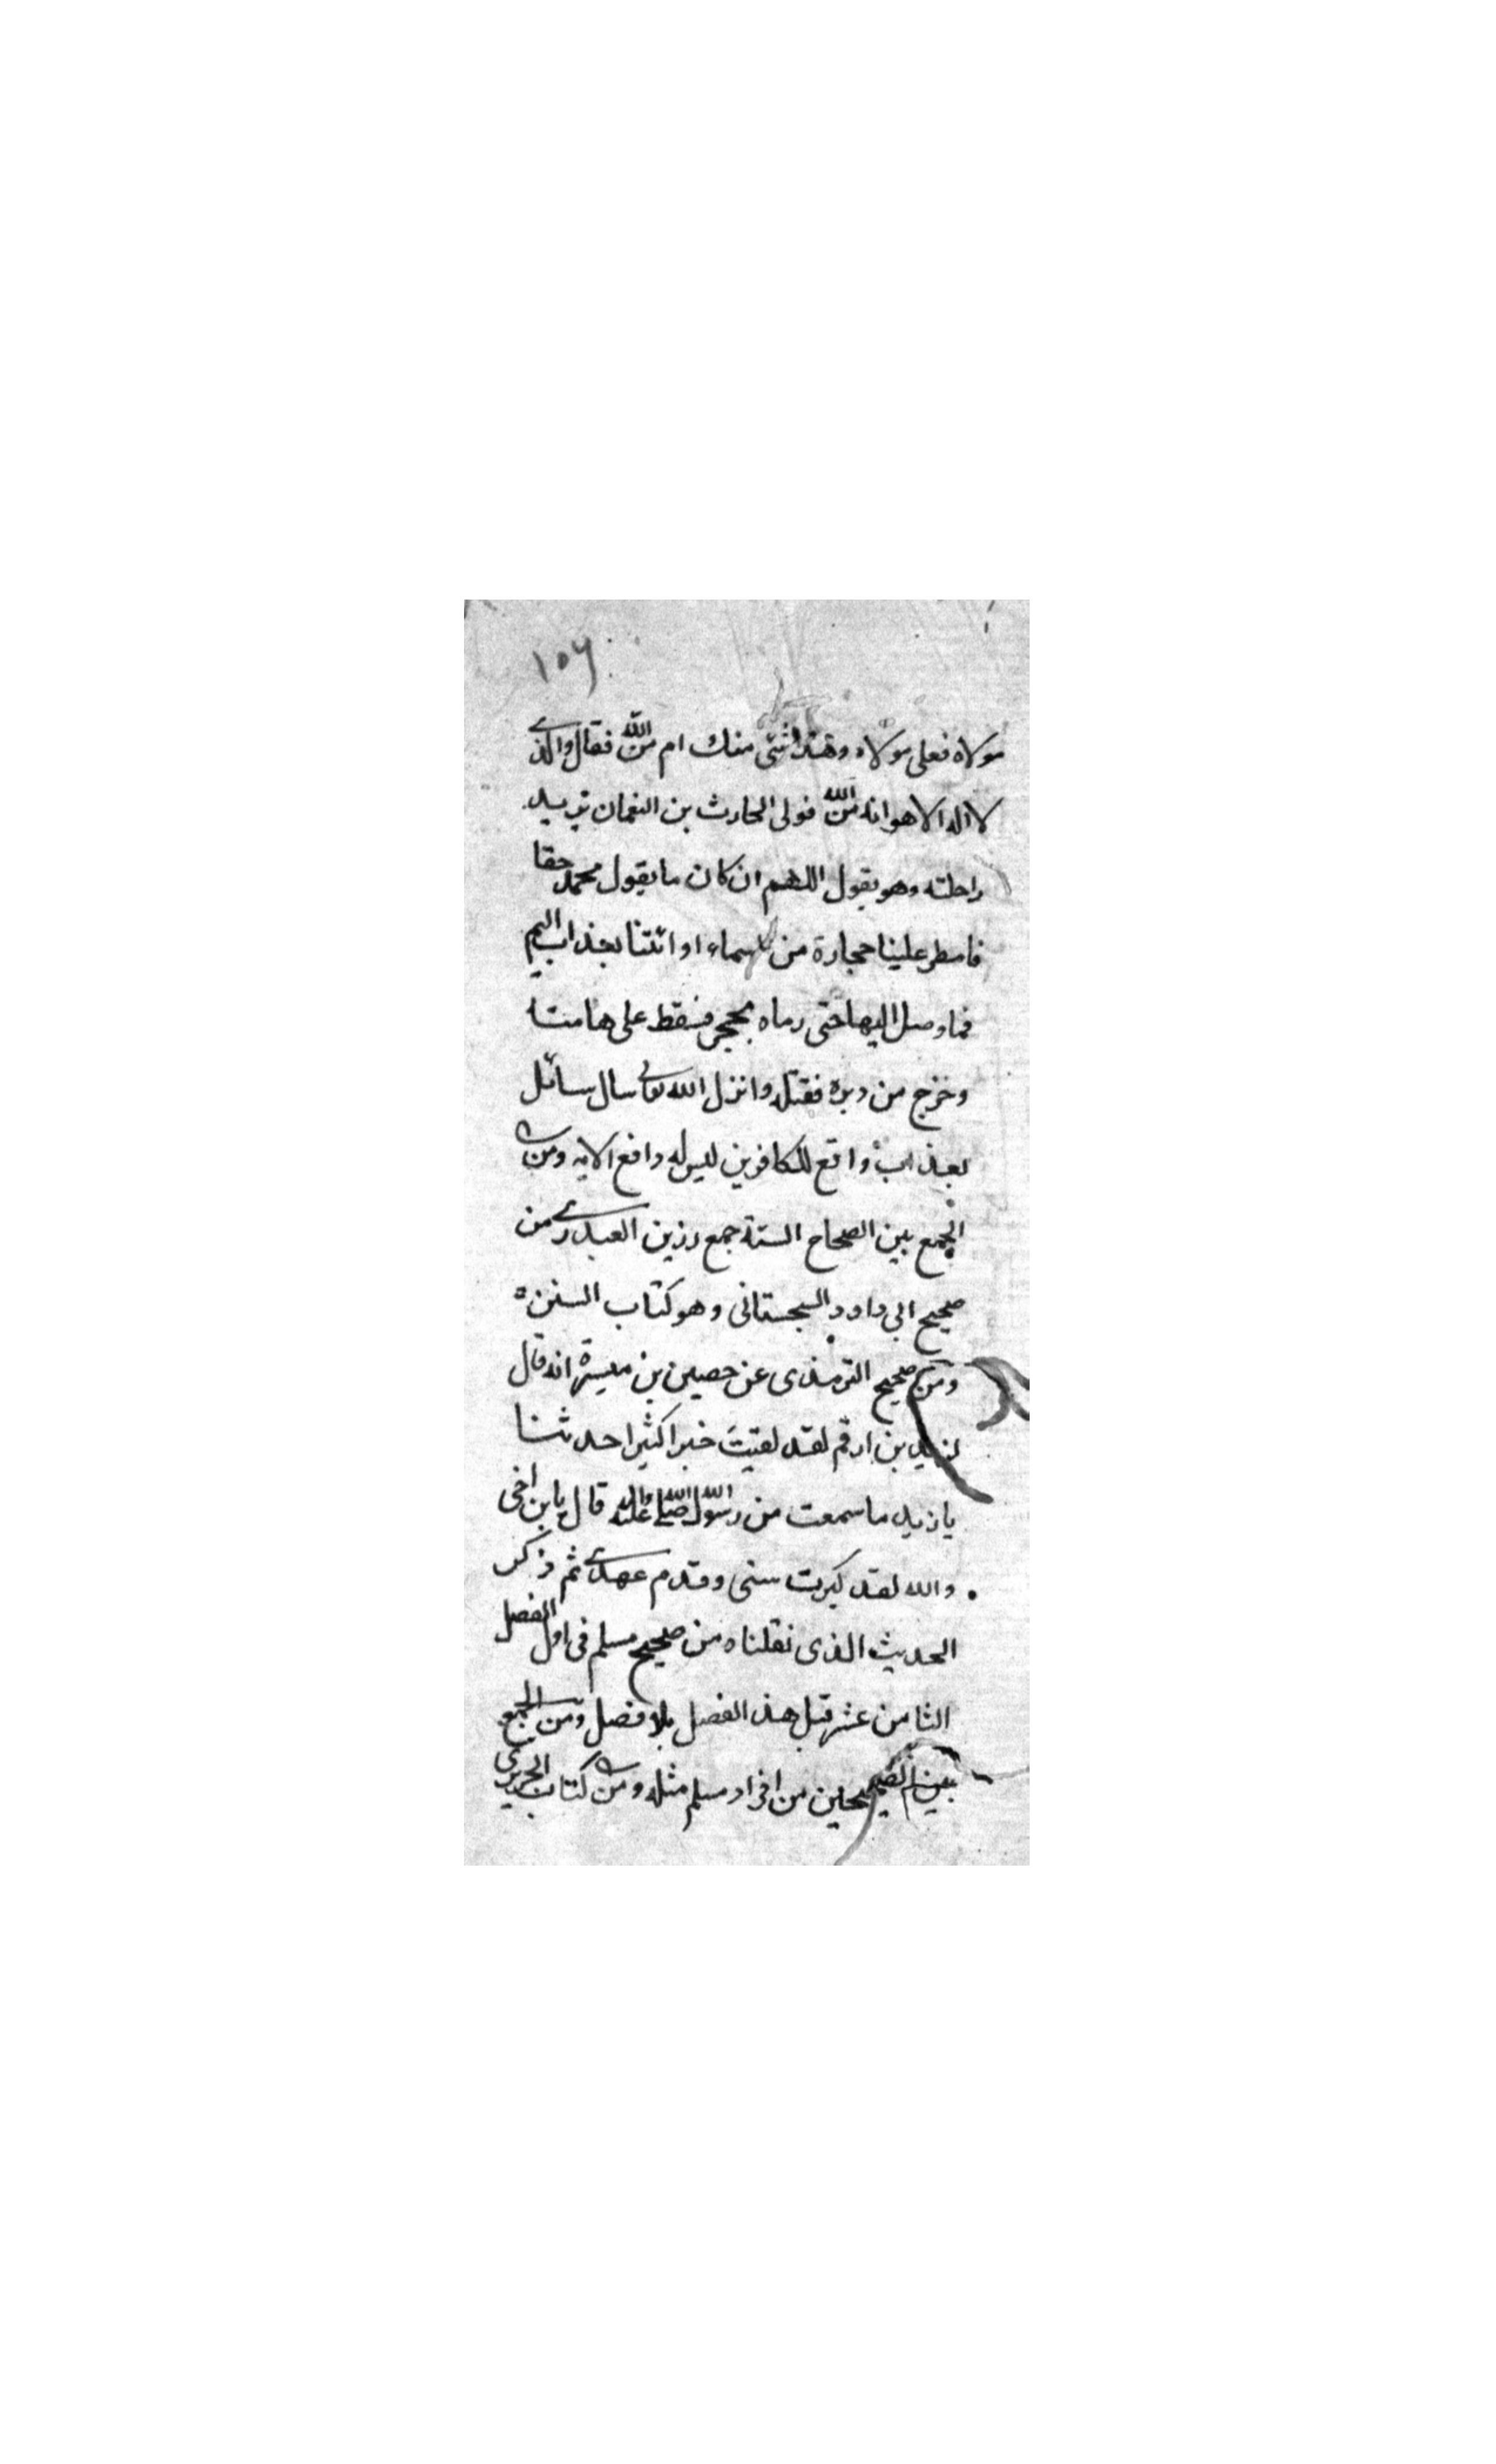 ١٥٦
مولاه فعلي مولاه وهذا شئ منك ام من الله فقال والذي
لا اله الا هو انه من الله فولى الحارث بن النعمان يريد
راحلته وهو يقول اللهم ان كان ما يقول محمد حقا
فامطر علينا حجارة من السماء او ائتنا بعذاب اليم
فما وصل اليها حتى رماه بحجر فسقط على هامته
وخرج من دبره فقتله وانزل الله تعالى سال سائل
بعذاب واقع للكافرين ليس له دافع الاية ومن
الجمع بين الصحاح الستة جمع رزين العبدري من
صحيح ابي داود السجستاني وهو كتاب السنن
ومن صحيح الترمذي عن حصين بن ميسرة انه قال
لزيد بن ارقم لقد لقيت خيرا كثيرا حدثنا
يا زيد ما سمعت من رسول الله صلى الله عليه واله قال يا بن اخي
والله لقد كبرت سني وقدم عهدي ثم ذكر
الحديث الذي نقلناه من صحيح مسلم في اول الفصل
الثامن عشر قبل هذا الفصل بلا فصل ومن الجمع
بين الصحيحين من افراد مسلم مثله ومن كتاب